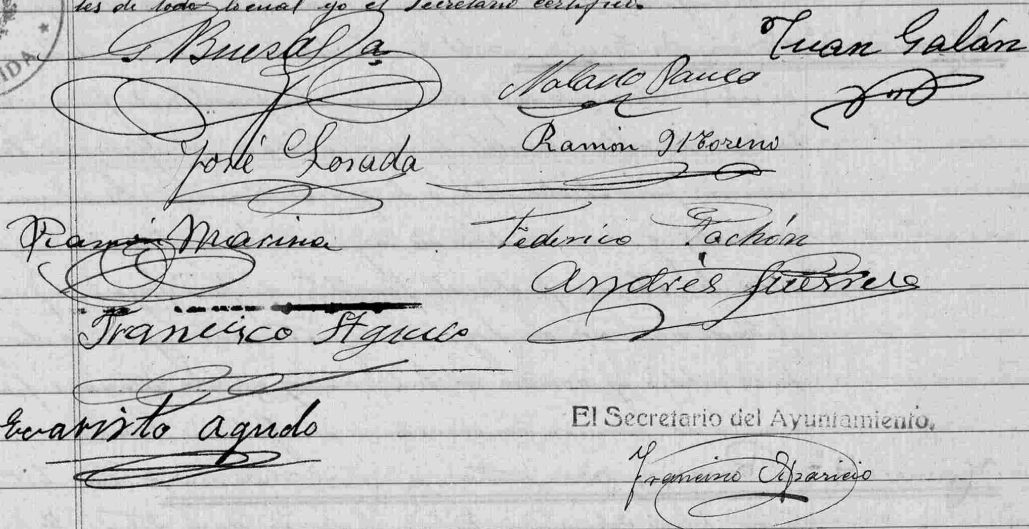 tes de todo lo cual yo el Secretario certifico
Juan Galán
José Losada
Ramón Moreno
Ramón Marina
Federico Pachón
Andrés Guerrero
Francisco
Evaristo agudo
El Secretario del Ayuntamiento,
Francisco Aparicio